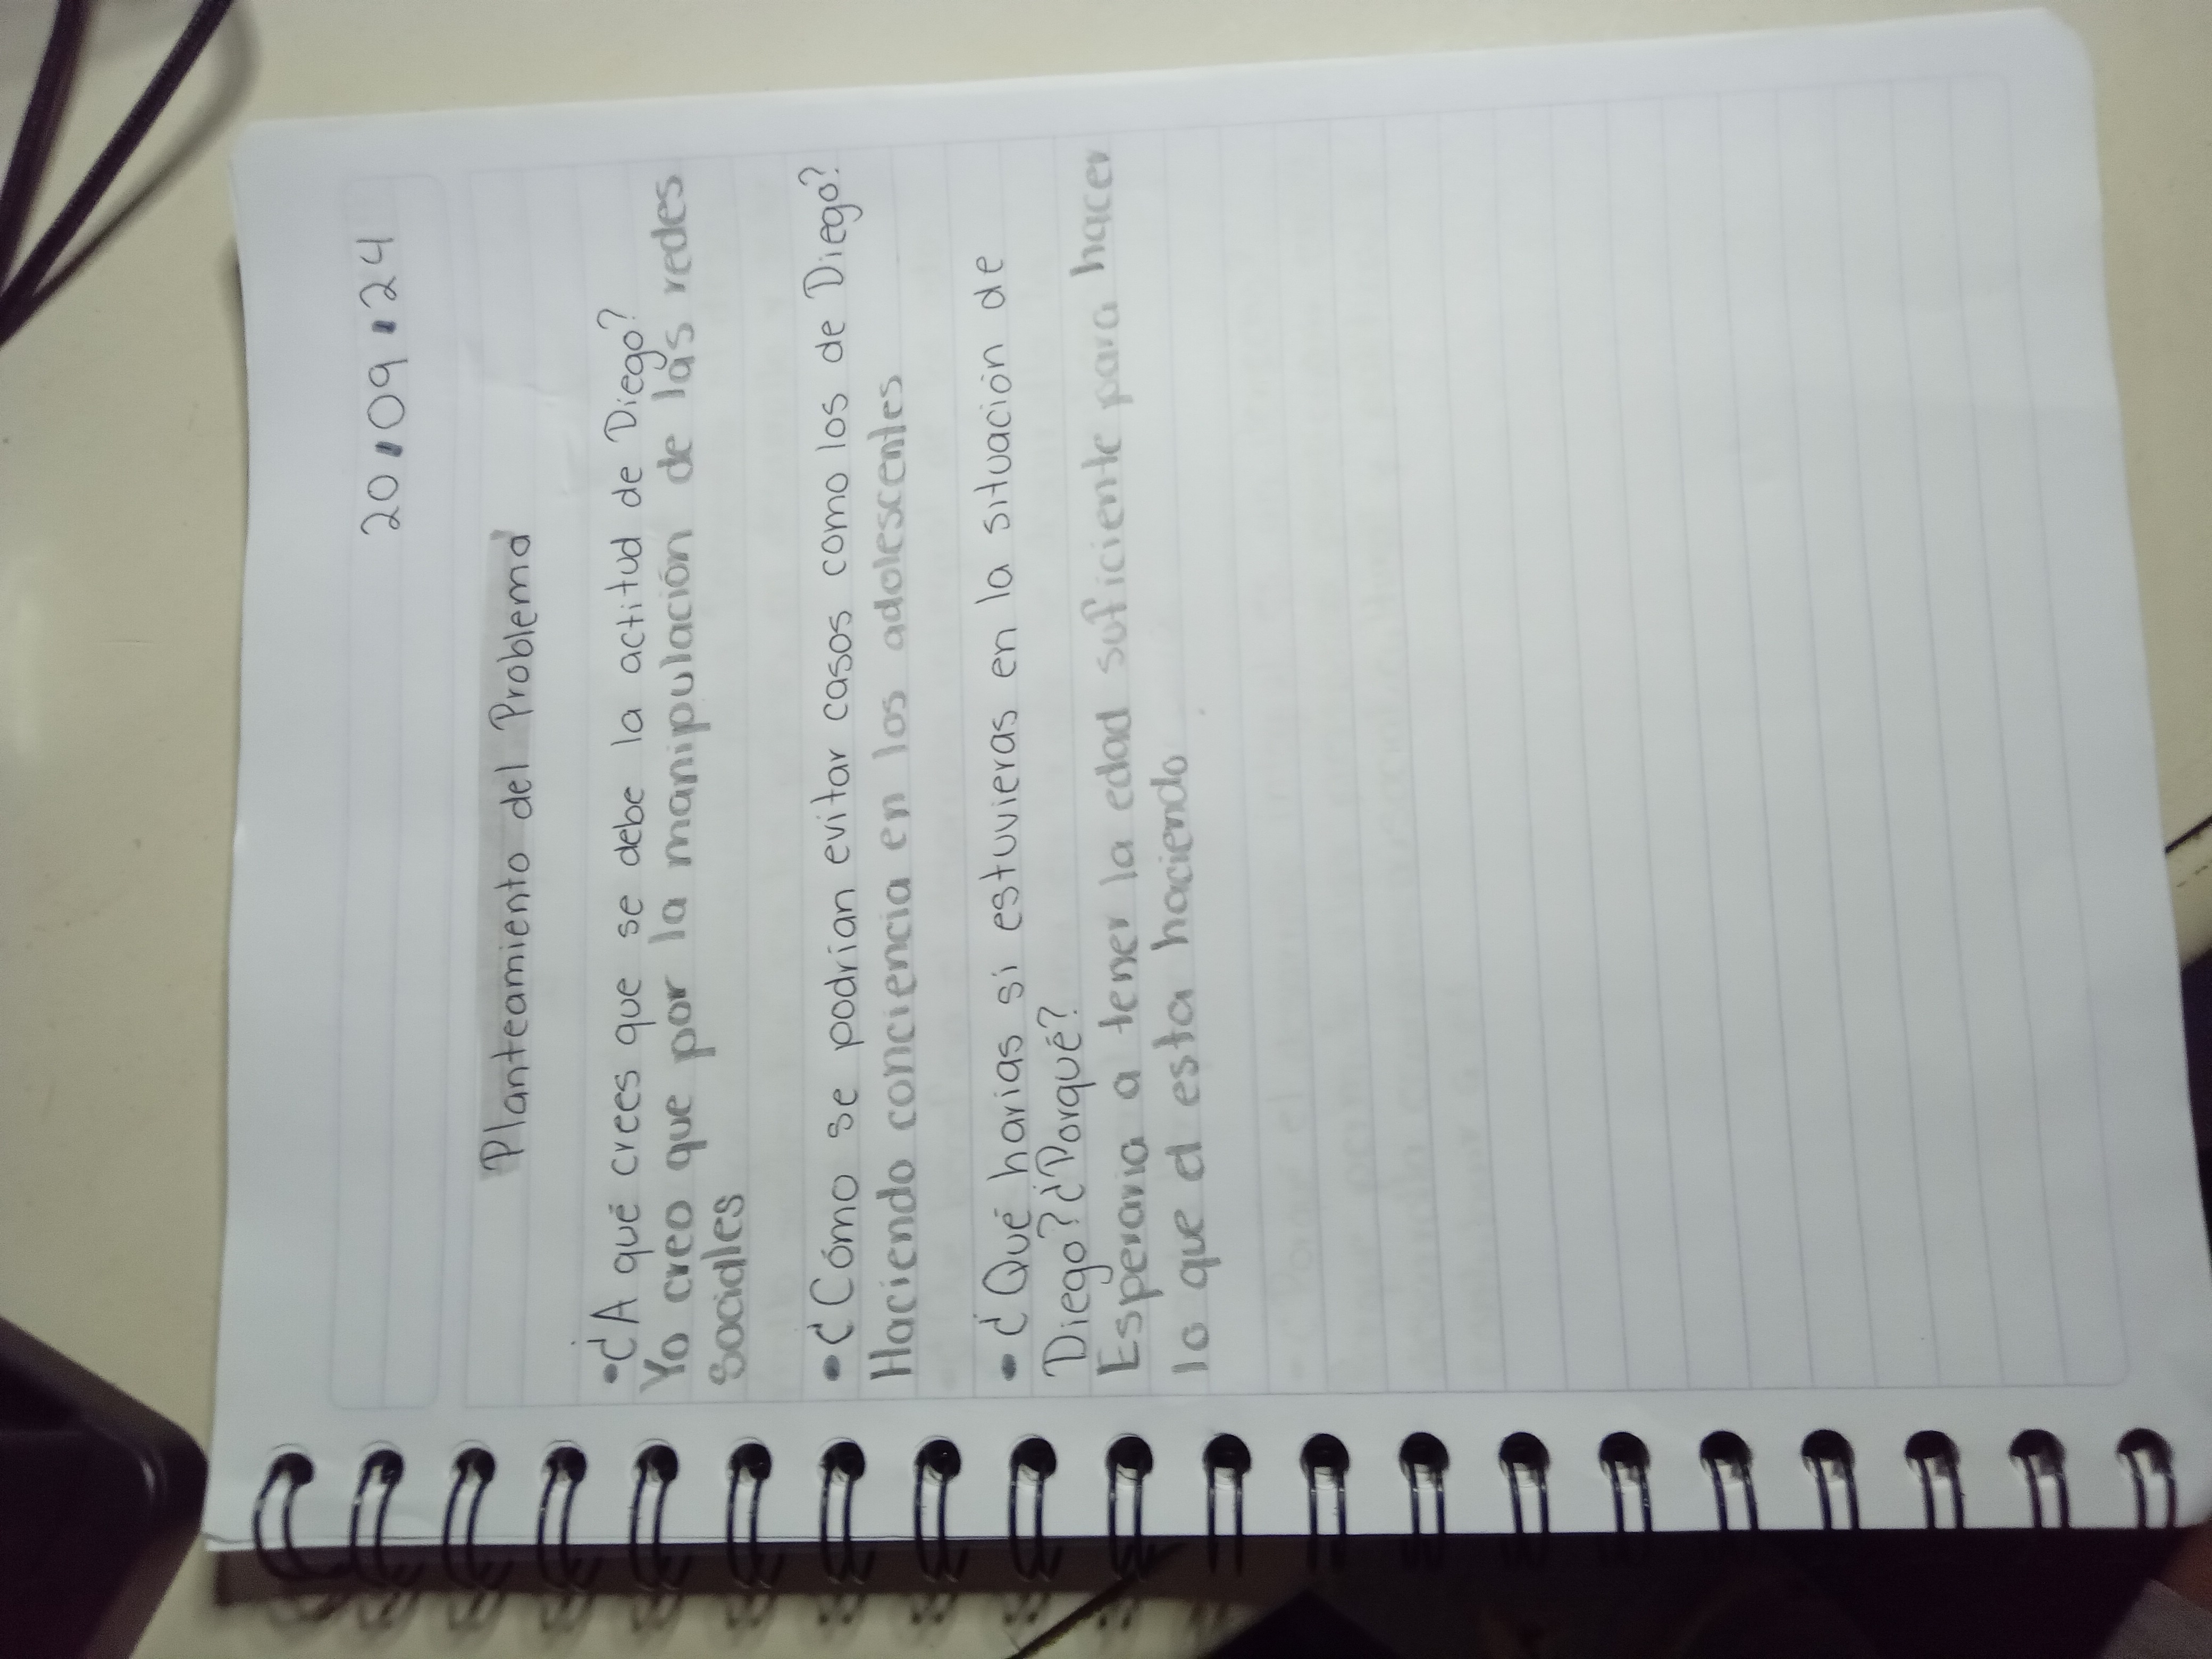 20.09.24
Planteamiento del Problema
•¿A qué crees que se debe la actitud de Diego?
Yo creo que por la manipulación de las redes
sociales
•¿Cómo se podrían evitar casos como los de Diego?
Haciendo conciencia en los adolescentes
•¿Qué harias si estuvieras en la situación de
Diego?¿Porqué?
Esperaria a tener la edad suficiente para hacer
lo que el esta haciendo